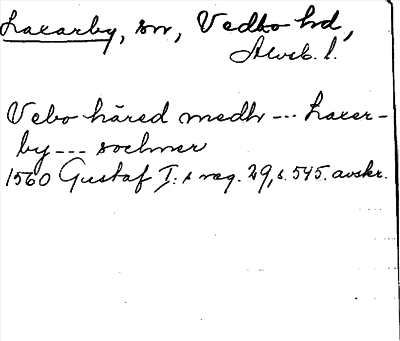 Laxarby, sn, Vedbo hd,
Älvsb. l.
Vebo häred medh --- Laxer-
by --- sochner
1560 Gustaf I:s reg. 29, s. 545. avskr.